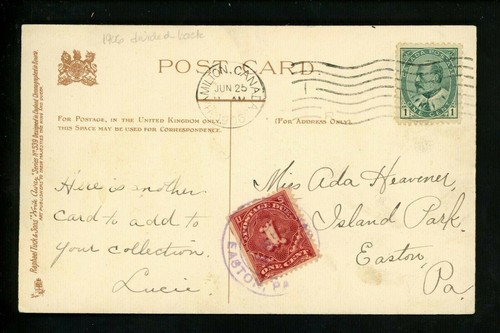 1906 divided back
POST CARD.
HAMILTON, CANADA
JUN 25
FOR POSTAGE, IN THE UNITED KINGDOM ONLY,
THIS SPACE MAY BE USED FOR CORRESPONDENCE.
(FOR ADDRESS ONLY).
CANADA POSTAGE
1 1
Here is another
card to add to
your collection.
Lucie.
Miss Ada Heavener,
Island Park.
Easton,
Pa.
POSTAGE DUE
1
ONE CENT
EASTON, PA
Raphael Tuck & Sons' "Write Away"